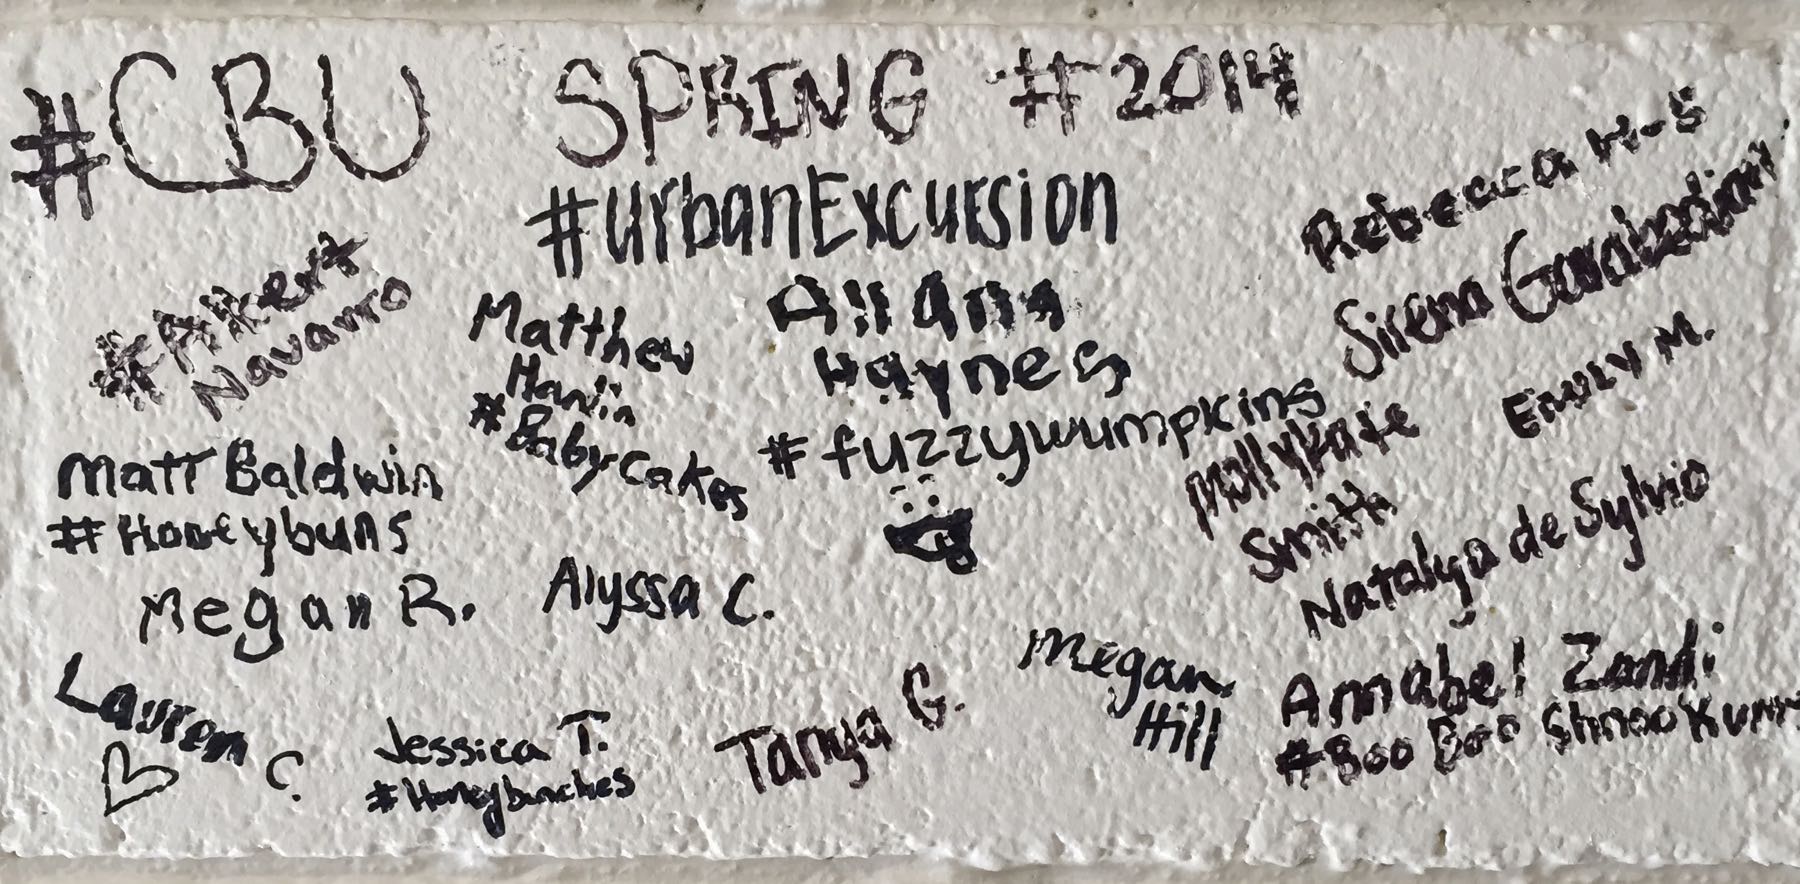 #CBU SPRING #2014
#UrbanExcursion
Rebecca H-S
Sirena Garabedian
Emily M.
Navarro
Matthew
#BabyCakes
Allana
Haynes
#fuzzywumpkins
Mollykate
Smith
Natalya de Sylvio
Matt Baldwin
#Honeybuns
Megan R.
Alyssa C.
Lauren C.
Jessica T.
#Honeybunches
Tanya G.
Megan
Hill
Annabel Zandi
#Boo Boo